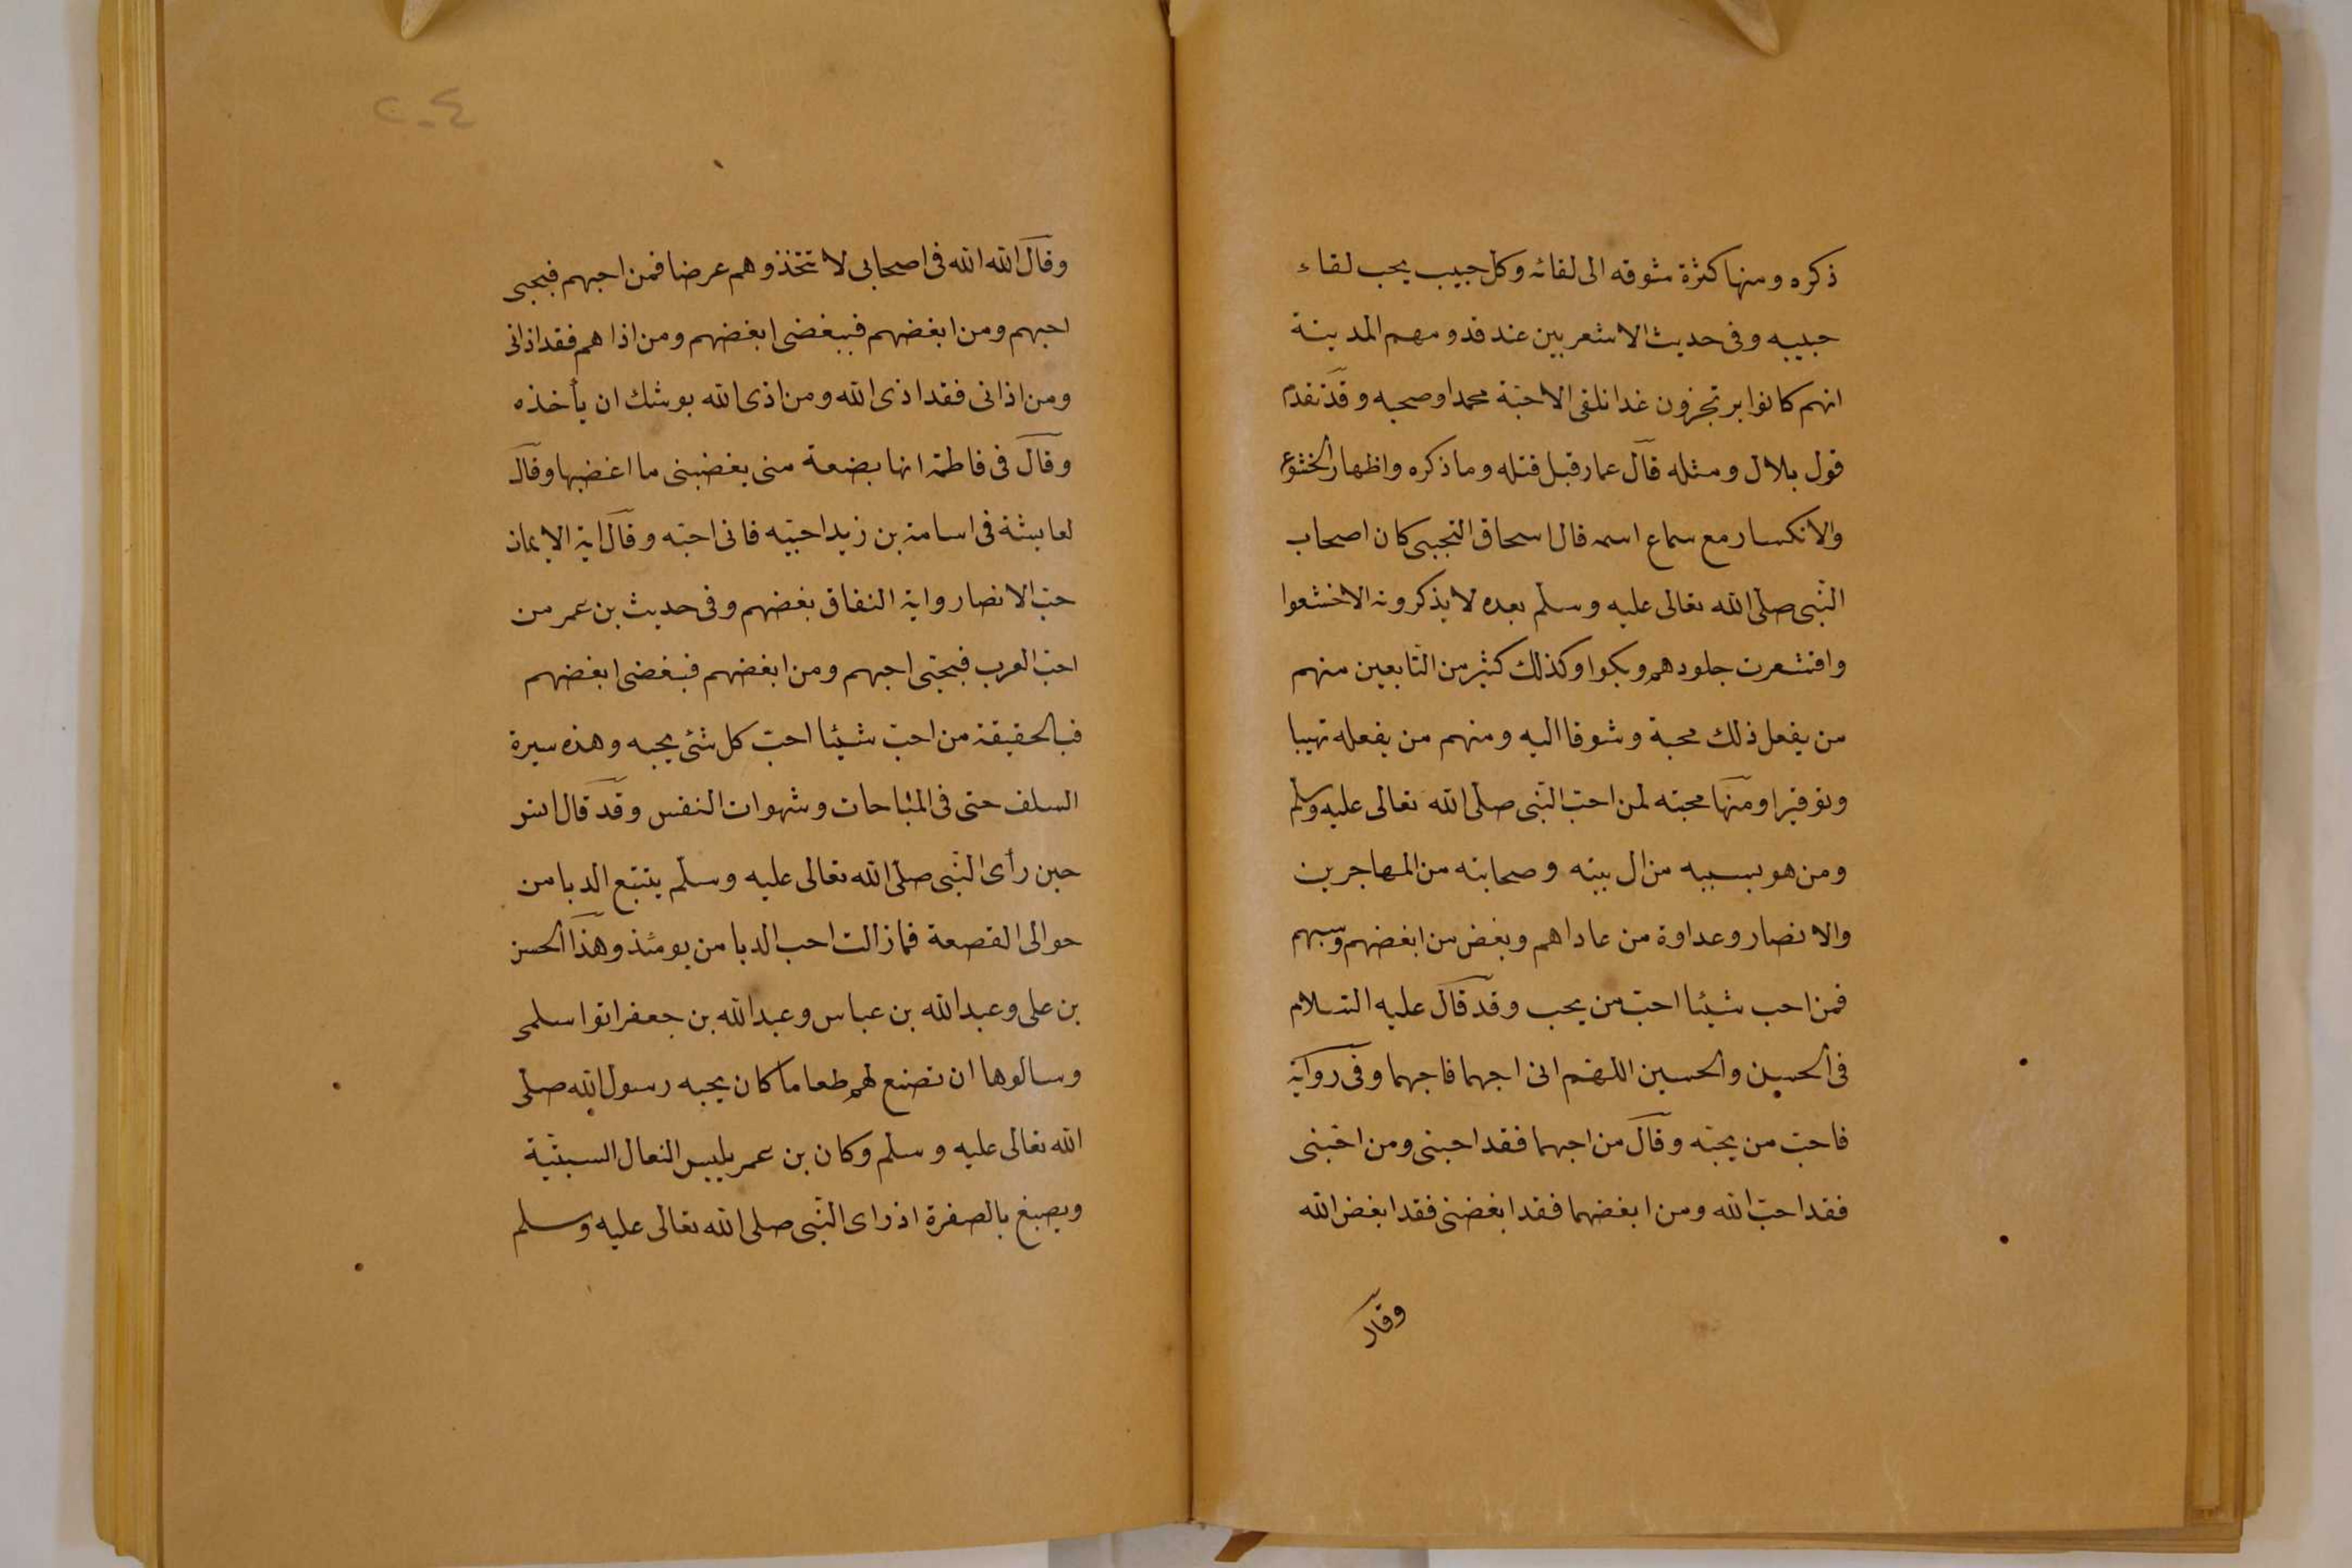 ذكره ومنها كثرة شوقه الى لقائه وكل حبيب يحب لقاء
حبيبه وفى حديث الاشعريين عند قدومهم المدينة
انهم كانوا يرتجزون غدا نلقى الاحبّة محمدا وصحبه وقد تقدم
قول بلال ومثله قال عمار قبل قتله وما ذكره واظهار الخشوع
والانكسار مع سماع اسمه قال اسحاق التجيبى كان اصحاب
النّبى صلى الله تعالى عليه وسلم بعده لا يذكرونه الا خشعوا
واقشعرت جلودهم وبكوا وكذلك كثير من التابعين منهم
من يفعل ذلك محبة وشوقا اليه ومنهم من يفعله تهيبا
وتوقيرا ومنها محبته لمن احبّ النّبى صلى الله تعالى عليه وسلم
ومن هو بسببه من ال بيته وصحابته من المهاجرين
والانصار وعداوة من عاداهم وبغض من ابغضهم وسبهم
فمن احب شيئا احبّ من يحب وقد قال عليه السلام
فى الحسن والحسين اللهم انى احبهما فاحبهما وفى رواية
فاحبّ من يحبّه وقال من احبهما فقد احبنى ومن احبّنى
فقد احبّ الله ومن ابغضهما فقد ابغضنى فقد ابغض الله
وقال
٢٠٤
وقال الله الله فى اصحابى لا تتخذوهم عرضا فمن احبهم فبحبى
احبهم ومن ابغضهم فببغضى ابغضهم ومن اذاهم فقد اذانى
ومن اذانى فقد اذى الله ومن اذى الله يوشك ان يأخذه
وقال فى فاطمة انها بضعة منى يغضبنى ما اغضبها وقال
لعايشة فى اسامة بن زيد احبّيه فانى احبّه وقال اية الايمان
حبّ الانصار واية النفاق بغضهم وفى حديث بن عمر من
احبّ العرب فبحبّى احبهم ومن ابغضهم فبغضى ابغضهم
فبالحقيقة من احبّ شيئا احبّ كل شئ يحبه وهذه سيرة
السلف حتى فى المباحات وشهوات النفس وقد قال انس
حين رأى النّبى صلى الله تعالى عليه وسلم يتتبع الدبا من
حوالى القصعة فما زالت احب الدبا من يومئذ وهذا الحسن
بن على وعبد الله بن عباس وعبد الله بن جعفر اتوا سلمى
وسالوها ان تصنع لهم طعاما كان يحبه رسول الله صلى
الله تعالى عليه وسلم وكان بن عمر يلبس النعال السبتية
ويصبغ بالصفرة اذ راى النّبى صلى الله تعالى عليه وسلم